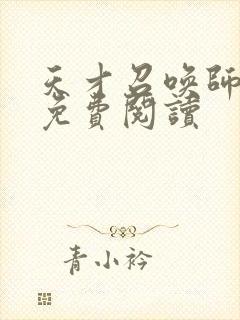 天才召喚師
免費閱讀
青小衿